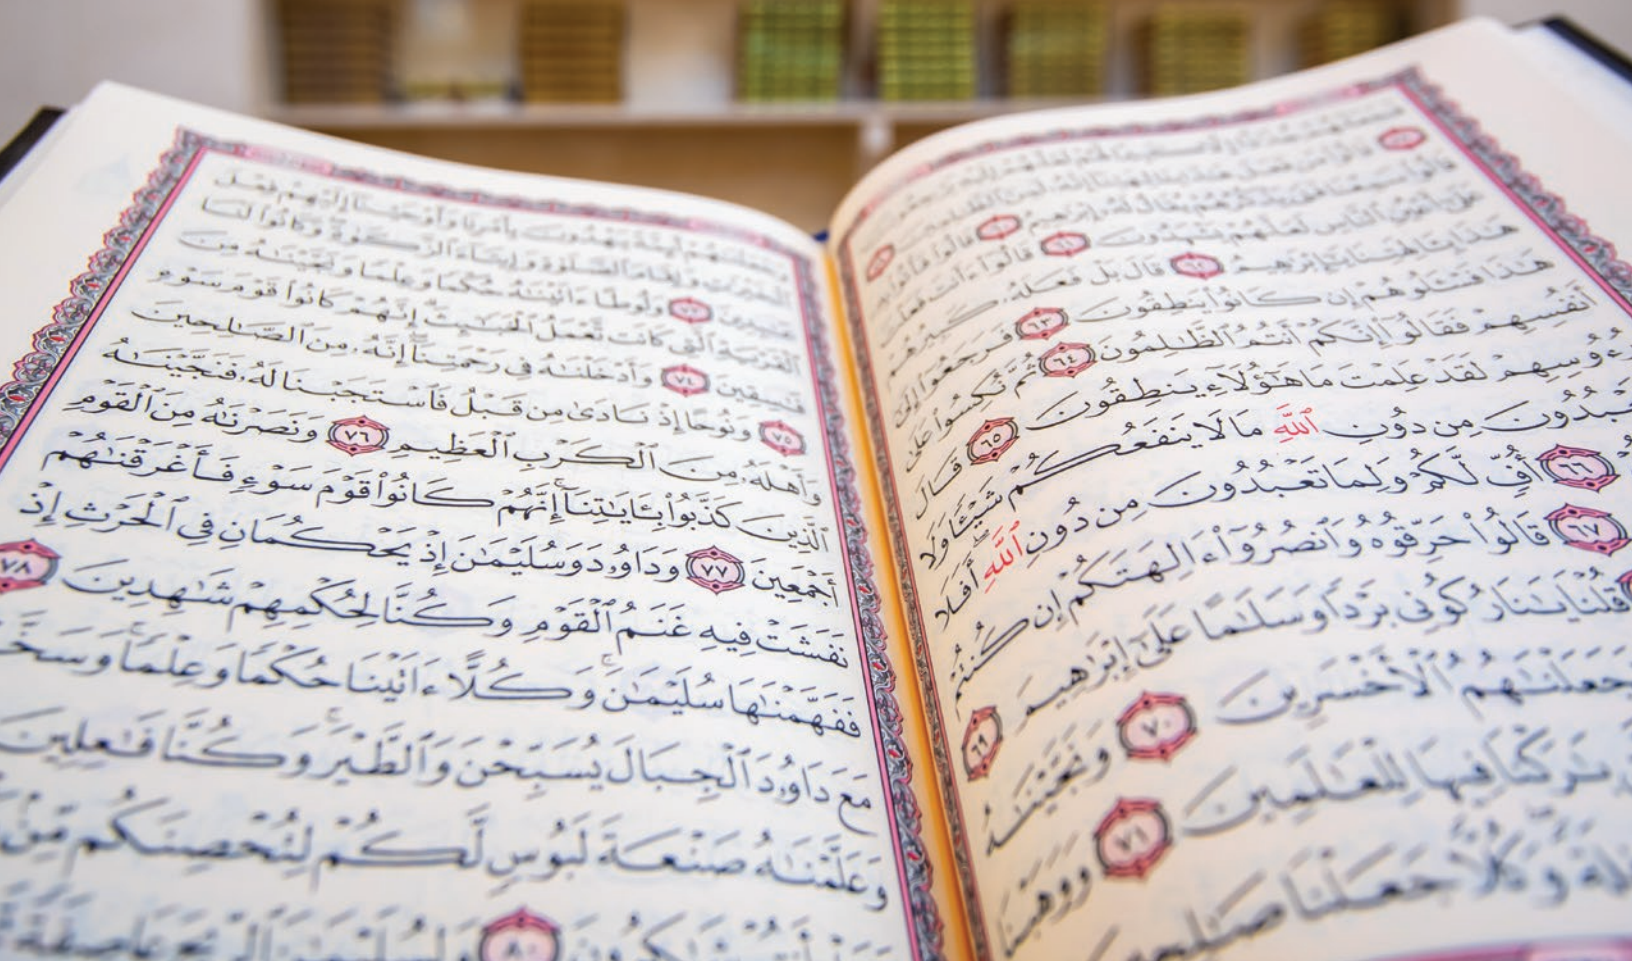 قَالُوا۟ مَن فَعَلَ
قَالُوا۟ سَمِعْنَا فَتًى يَذْكُرُهُمْ يُقَالُ لَهُۥٓ إِبْرَٰهِيمُ ٦٠ قَالُوا۟ فَأْتُوا۟ بِهِۦ
عَلَىٰٓ أَعْيُنِ ٱلنَّاسِ لَعَلَّهُمْ يَشْهَدُونَ ٦١ قَالُوٓا۟ ءَأَنتَ فَعَلْتَ
هَٰذَا بِـَٔالِهَتِنَا يَٰٓإِبْرَٰهِيمُ ٦٢ قَالَ بَلْ فَعَلَهُۥ كَبِيرُهُمْ
هَٰذَا فَسْـَٔلُوهُمْ إِن كَانُوا۟ يَنطِقُونَ ٦٣ فَرَجَعُوٓا۟ إِلَىٰٓ
أَنفُسِهِمْ فَقَالُوٓا۟ إِنَّكُمْ أَنتُمُ ٱلظَّٰلِمُونَ ٦٤ ثُمَّ نُكِسُوا۟ عَلَىٰ
رُءُوسِهِمْ لَقَدْ عَلِمْتَ مَا هَٰٓؤُلَآءِ يَنطِقُونَ ٦٥ قَالَ
بُدُونَ مِن دُونِ ٱللَّهِ مَا لَا يَنفَعُكُمْ شَيْـًٔا وَلَا
٦٦ أُفٍّ لَّكُمْ وَلِمَا تَعْبُدُونَ مِن دُونِ ٱللَّهِ أَفَلَا
٦٧ قَالُوا۟ حَرِّقُوهُ وَٱنصُرُوٓا۟ ءَالِهَتَكُمْ إِن كُنتُمْ
قُلْنَا يَٰنَارُ كُونِى بَرْدًا وَسَلَٰمًا عَلَىٰٓ إِبْرَٰهِيمَ ٦٩
جَعَلْنَٰهُمُ ٱلْأَخْسَرِينَ ٧٠ وَنَجَّيْنَٰهُ
بَٰرَكْنَا فِيهَا لِلْعَٰلَمِينَ ٧١ وَوَهَبْنَا
وَكُلًّا جَعَلْنَا صَٰلِحِينَ
وَجَعَلْنَٰهُمْ أَئِمَّةً يَهْدُونَ بِأَمْرِنَا وَأَوْحَيْنَآ إِلَيْهِمْ فِعْلَ
ٱلْخَيْرَٰتِ وَإِقَامَ ٱلصَّلَوٰةِ وَإِيتَآءَ ٱلزَّكَوٰةِ وَكَانُوا۟ لَنَا
عَٰبِدِينَ ٧٣ وَلُوطًا ءَاتَيْنَٰهُ حُكْمًا وَعِلْمًا وَنَجَّيْنَٰهُ مِنَ
ٱلْقَرْيَةِ ٱلَّتِى كَانَت تَّعْمَلُ ٱلْخَبَٰٓئِثَ إِنَّهُمْ كَانُوا۟ قَوْمَ سَوْءٍ
فَٰسِقِينَ ٧٤ وَأَدْخَلْنَٰهُ فِى رَحْمَتِنَآ إِنَّهُۥ مِنَ ٱلصَّٰلِحِينَ
٧٥ وَنُوحًا إِذْ نَادَىٰ مِن قَبْلُ فَٱسْتَجَبْنَا لَهُۥ فَنَجَّيْنَٰهُ
وَأَهْلَهُۥ مِنَ ٱلْكَرْبِ ٱلْعَظِيمِ ٧٦ وَنَصَرْنَٰهُ مِنَ ٱلْقَوْمِ
ٱلَّذِينَ كَذَّبُوا۟ بِـَٔايَٰتِنَآ إِنَّهُمْ كَانُوا۟ قَوْمَ سَوْءٍ فَأَغْرَقْنَٰهُمْ
أَجْمَعِينَ ٧٧ وَدَاوُۥدَ وَسُلَيْمَٰنَ إِذْ يَحْكُمَانِ فِى ٱلْحَرْثِ إِذْ
نَفَشَتْ فِيهِ غَنَمُ ٱلْقَوْمِ وَكُنَّا لِحُكْمِهِمْ شَٰهِدِينَ ٧٨
فَفَهَّمْنَٰهَا سُلَيْمَٰنَ وَكُلًّا ءَاتَيْنَا حُكْمًا وَعِلْمًا وَسَخَّ
مَعَ دَاوُۥدَ ٱلْجِبَالَ يُسَبِّحْنَ وَٱلطَّيْرَ وَكُنَّا فَٰعِلِينَ
وَعَلَّمْنَٰهُ صَنْعَةَ لَبُوسٍ لَّكُمْ لِتُحْصِنَكُم مِّنۢ
أَنتُمْ شَٰكِرُونَ ٨٠ وَلِسُلَيْمَٰنَ ٱلرِّيحَ عَاصِفَةً